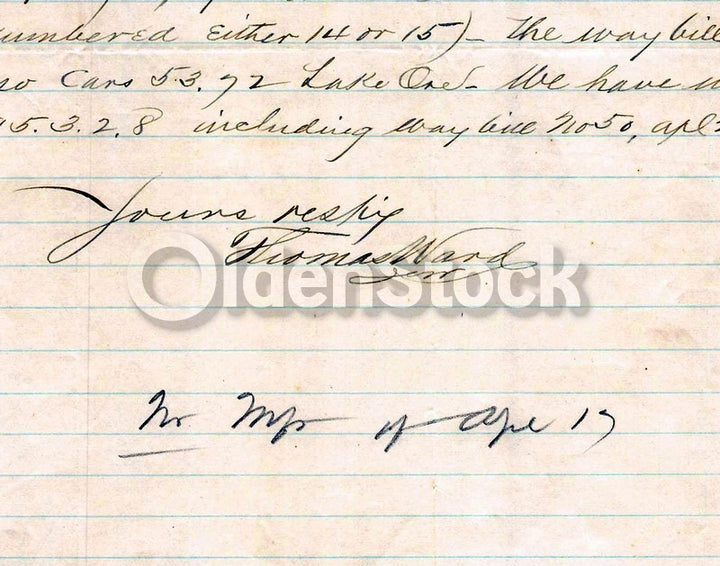 umbered either 14 or 15)- The way bill
so Cars 53.72 Lake Ore- We have
95.3.2.8 including way bill No 50, apl
Yours respty
Thomas Ward
OldenStock
of Apl 17